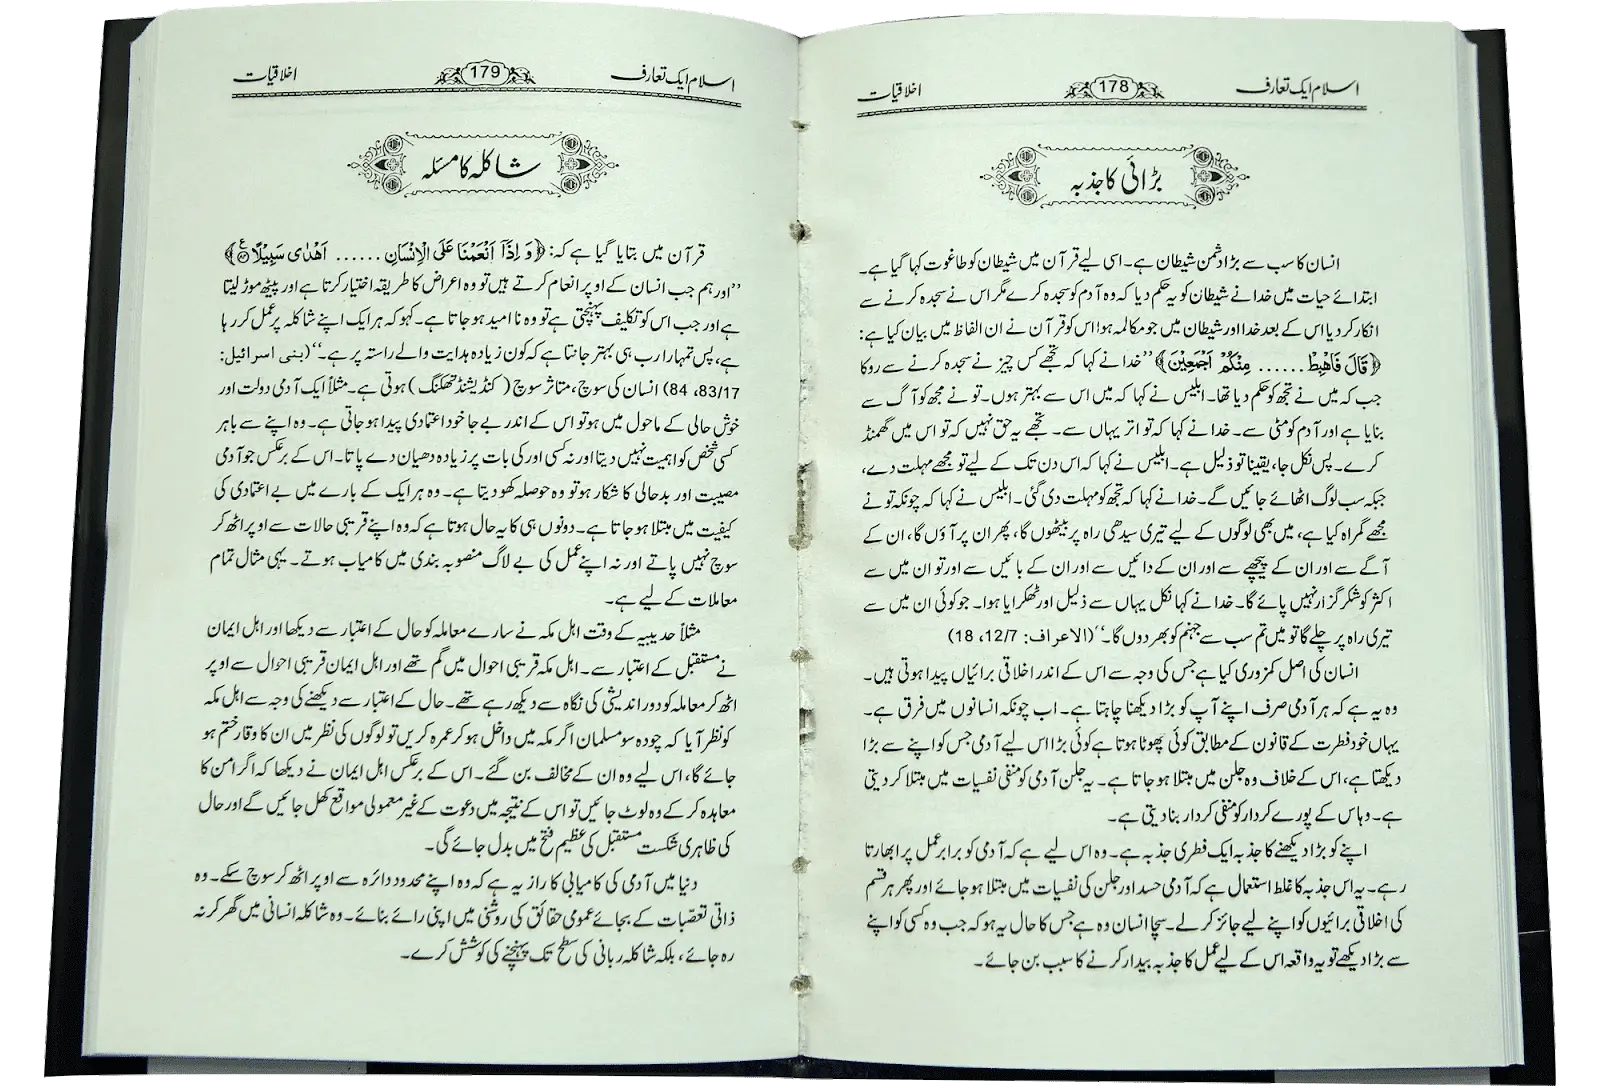 اسلام ایک تعارف 178 اخلاقیات
بڑائی کا جذبہ
انسان کا سب سے بڑا دشمن شیطان ہے۔ اسی لیے قرآن میں شیطان کو طاغوت کہا گیا ہے۔
ابتدائے حیات میں خدا نے شیطان کو یہ حکم دیا کہ وہ آدم کو سجدہ کرے مگر اس نے سجدہ کرنے سے
انکار کر دیا اس کے بعد خدا اور شیطان میں جو مکالمہ ہوا اس کو قرآن نے ان الفاظ میں بیان کیا ہے:
﴿قَالَ فَاهْبِطْ ...... مِنْكُمْ اَجْمَعِیْنَ﴾ ’’خدا نے کہا کہ تجھے کس چیز نے سجدہ کرنے سے روکا
جب کہ میں نے تجھ کو حکم دیا تھا۔ ابلیس نے کہا کہ میں اس سے بہتر ہوں۔ تو نے مجھ کو آگ سے
بنایا ہے اور آدم کو مٹی سے۔ خدا نے کہا کہ تو اتر یہاں سے۔ تجھے یہ حق نہیں کہ تو اس میں گھمنڈ
کرے۔ پس نکل جا، یقیناً تو ذلیل ہے۔ ابلیس نے کہا کہ اس دن تک کے لیے تو مجھے مہلت دے،
جبکہ سب لوگ اٹھائے جائیں گے۔ خدا نے کہا کہ تجھ کو مہلت دی گئی۔ ابلیس نے کہا کہ چونکہ تو نے
مجھے گمراہ کیا ہے، میں بھی لوگوں کے لیے تیری سیدھی راہ پر بیٹھوں گا، پھر ان پر آؤں گا، ان کے
آگے سے اور ان کے پیچھے سے اور ان کے دائیں سے اور ان کے بائیں سے اور تو ان میں سے
اکثر کو شکر گزار نہیں پائے گا۔ خدا نے کہا نکل یہاں سے ذلیل اور ٹھکرایا ہوا۔ جو کوئی ان میں سے
تیری راہ پر چلے گا تو میں تم سب سے جہنم کو بھر دوں گا۔‘‘ (الاعراف: 12/7، 18)
انسان کی اصل کمزوری کیا ہے جس کی وجہ سے اس کے اندر اخلاقی برائیاں پیدا ہوتی ہیں۔
وہ یہ ہے کہ ہر آدمی صرف اپنے آپ کو بڑا دیکھنا چاہتا ہے۔ اب چونکہ انسانوں میں فرق ہے۔
یہاں خود فطرت کے قانون کے مطابق کوئی چھوٹا ہوتا ہے کوئی بڑا اس لیے آدمی جس کو اپنے سے بڑا
دیکھتا ہے، اس کے خلاف وہ جلن میں مبتلا ہو جاتا ہے۔ یہ جلن آدمی کو منفی نفسیات میں مبتلا کر دیتی
ہے۔ وہ اس کے پورے کردار کو منفی کردار بنا دیتی ہے۔
اپنے کو بڑا دیکھنے کا جذبہ ایک فطری جذبہ ہے۔ وہ اس لیے ہے کہ آدمی کو برابر عمل پر ابھارتا
رہے۔ یہ اس جذبہ کا غلط استعمال ہے کہ آدمی حسد اور جلن کی نفسیات میں مبتلا ہو جائے اور پھر ہر قسم
کی اخلاقی برائیوں کو اپنے لیے جائز کر لے۔ سچا انسان وہ ہے جس کا حال یہ ہو کہ جب وہ کسی کو اپنے
سے بڑا دیکھے تو یہ واقعہ اس کے لیے عمل کا جذبہ بیدار کرنے کا سبب بن جائے۔
اسلام ایک تعارف 179 اخلاقیات
شاکلہ کا مسئلہ
قرآن میں بتایا گیا ہے کہ: ﴿وَ اِذَاۤ اَنْعَمْنَا عَلَی الْاِنْسَانِ ...... اَهْدٰی سَبِیْلًا﴾
’’اور ہم جب انسان کے اوپر انعام کرتے ہیں تو وہ اعراض کا طریقہ اختیار کرتا ہے اور پیٹھ موڑ لیتا
ہے اور جب اس کو تکلیف پہنچتی ہے تو وہ نا امید ہو جاتا ہے۔ کہو کہ ہر ایک اپنے شاکلہ پر عمل کر رہا
ہے، پس تمہارا رب ہی بہتر جانتا ہے کہ کون زیادہ ہدایت والے راستہ پر ہے۔‘‘ (بنی اسرائیل:
83/17، 84) انسان کی سوچ، متاثر سوچ (کنڈیشنڈ تھنکنگ) ہوتی ہے۔ مثلاً ایک آدمی دولت اور
خوش حالی کے ماحول میں ہو تو اس کے اندر بے جا خود اعتمادی پیدا ہو جاتی ہے۔ وہ اپنے سے باہر
کسی شخص کو اہمیت نہیں دیتا اور نہ کسی اور کی بات پر زیادہ دھیان دے پاتا۔ اس کے برعکس جو آدمی
مصیبت اور بدحالی کا شکار ہو تو وہ حوصلہ کھو دیتا ہے۔ وہ ہر ایک کے بارے میں بے اعتمادی کی
کیفیت میں مبتلا ہو جاتا ہے۔ دونوں ہی کا یہ حال ہوتا ہے کہ وہ اپنے قریبی حالات سے اوپر اٹھ کر
سوچ نہیں پاتے اور نہ اپنے عمل کی بے لاگ منصوبہ بندی میں کامیاب ہوتے۔ یہی مثال تمام
معاملات کے لیے ہے۔
مثلاً حدیبیہ کے وقت اہل مکہ نے سارے معاملہ کو حال کے اعتبار سے دیکھا اور اہل ایمان
نے مستقبل کے اعتبار سے۔ اہل مکہ قریبی احوال میں گم تھے اور اہل ایمان قریبی احوال سے اوپر
اٹھ کر معاملہ کو دور اندیشی کی نگاہ سے دیکھ رہے تھے۔ حال کے اعتبار سے دیکھنے کی وجہ سے اہل مکہ
کو نظر آیا کہ چودہ سو مسلمان اگر مکہ میں داخل ہو کر عمرہ کریں تو لوگوں کی نظر میں ان کا وقار ختم ہو
جائے گا، اس لیے وہ ان کے مخالف بن گئے۔ اس کے برعکس اہل ایمان نے دیکھا کہ اگر امن کا
معاہدہ کر کے وہ لوٹ جائیں تو اس کے نتیجہ میں دعوت کے غیر معمولی مواقع کھل جائیں گے اور حال
کی ظاہری شکست مستقبل کی عظیم فتح میں بدل جائے گی۔
دنیا میں آدمی کی کامیابی کا راز یہ ہے کہ وہ اپنے محدود دائرہ سے اوپر اٹھ کر سوچ سکے۔ وہ
ذاتی تعصبات کے بجائے عمومی حقائق کی روشنی میں اپنی رائے بنائے۔ وہ شاکلہ انسانی میں گھر کر نہ
رہ جائے، بلکہ شاکلہ ربانی کی سطح تک پہنچنے کی کوشش کرے۔